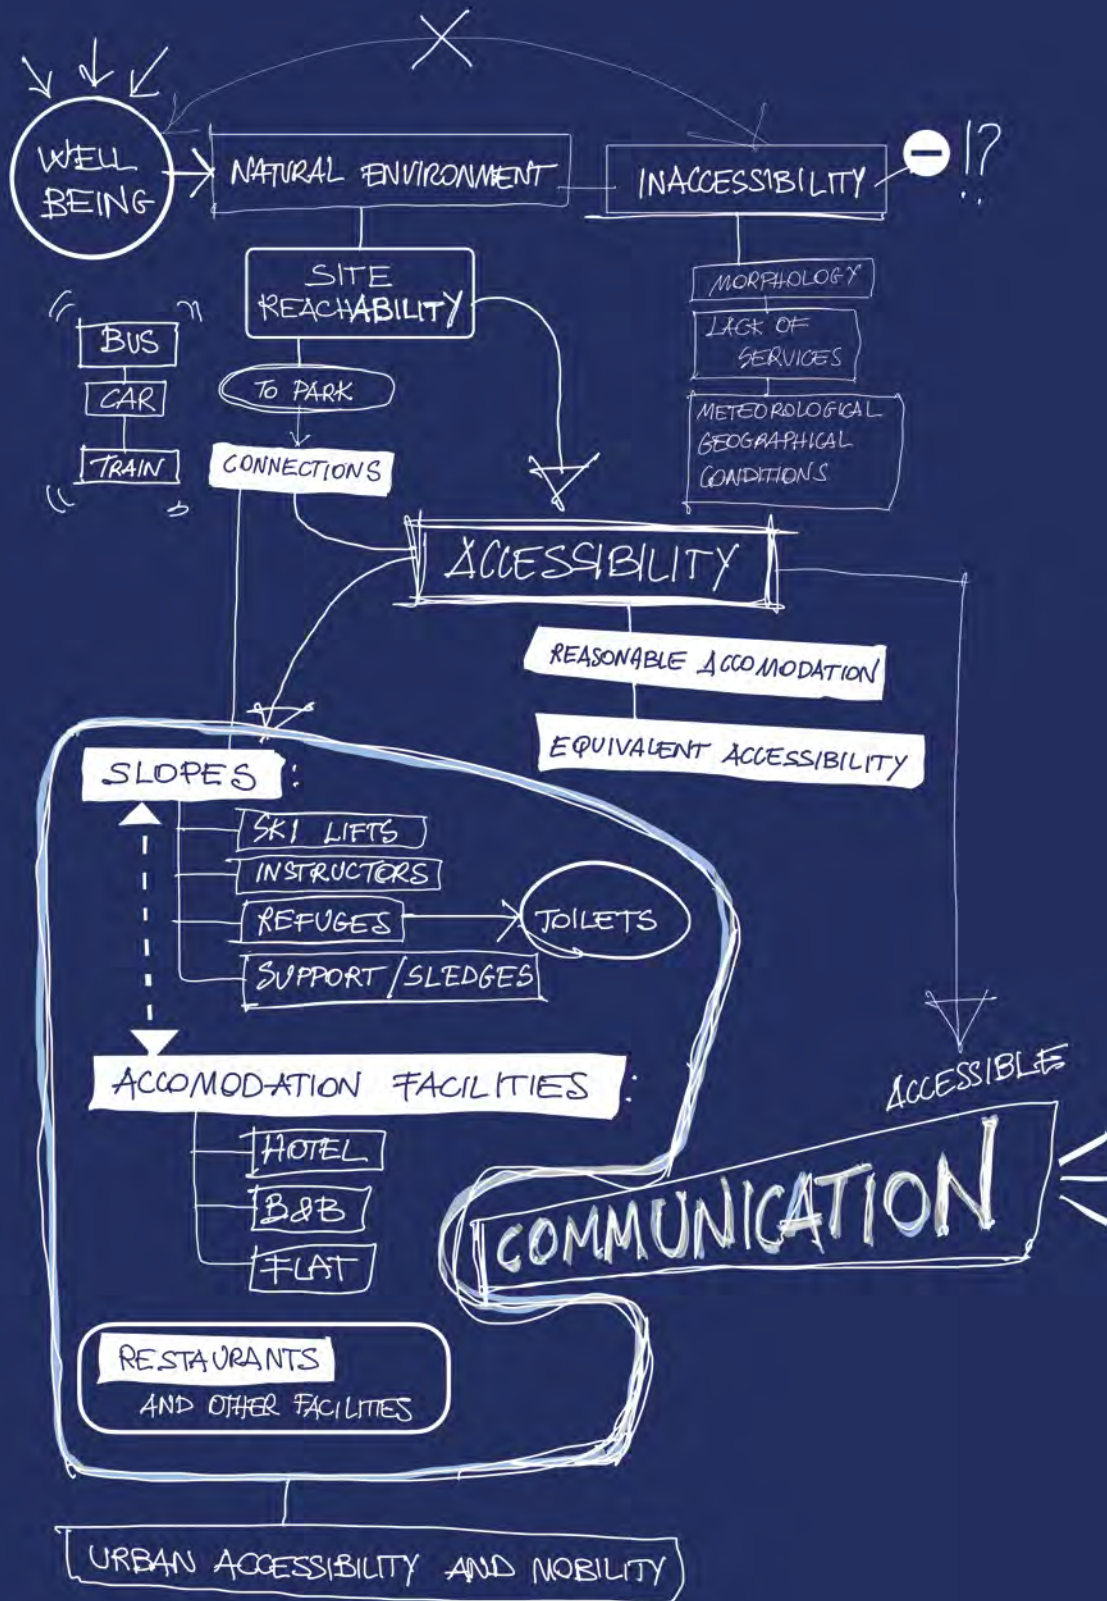 WELL
BEING
NATURAL ENVIRONMENT
INACCESSIBILITY
!?
SITE
REACHABILITY
MORPHOLOGY
LACK OF
SERVICES
METEOROLOGICAL
GEOGRAPHICAL
CONDITIONS
BUS
CAR
TRAIN
TO PARK
CONNECTIONS
ACCESSIBILITY
REASONABLE ACCOMODATION
EQUIVALENT ACCESSIBILITY
SLOPES:
SKI LIFTS
INSTRUCTORS
REFUGES
TOILETS
SUPPORT/SLEDGES
ACCOMODATION FACILITIES:
HOTEL
B&B
FLAT
ACCESSIBLE
COMMUNICATION
RESTAURANTS
AND OTHER FACILITIES
URBAN ACCESSIBILITY AND MOBILITY